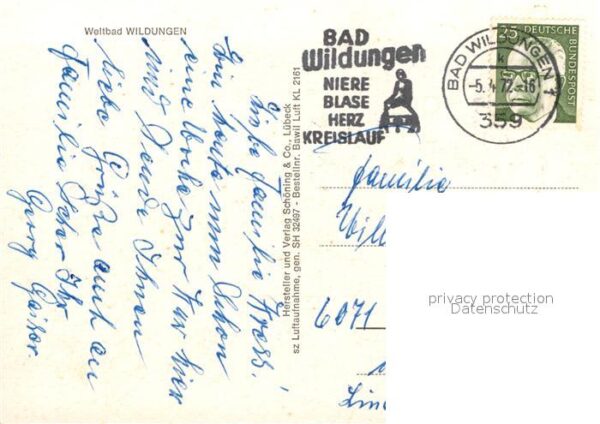 Weltbad WILDUNGEN
Liebe Familie Kress!
Bin heute nun schon
eine Woche zur Kur hier
und sende Ihnen
liebe Grüße auch an
Familie
Georg
Hersteller und Verlag Schöning & Co., Lübeck
sz Luftaufnahme, gen. SH 32497 - Bestellnr. Bawil Luft KL 2161
BAD
Wildungen
NIERE
BLASE
HERZ
KREISLAUF
BAD WILDUNGEN 1
k
-5.4.72.-16
359
25
DEUTSCHE
BUNDESPOST
Familie
Will
6071
Lin
privacy protection
Datenschutz